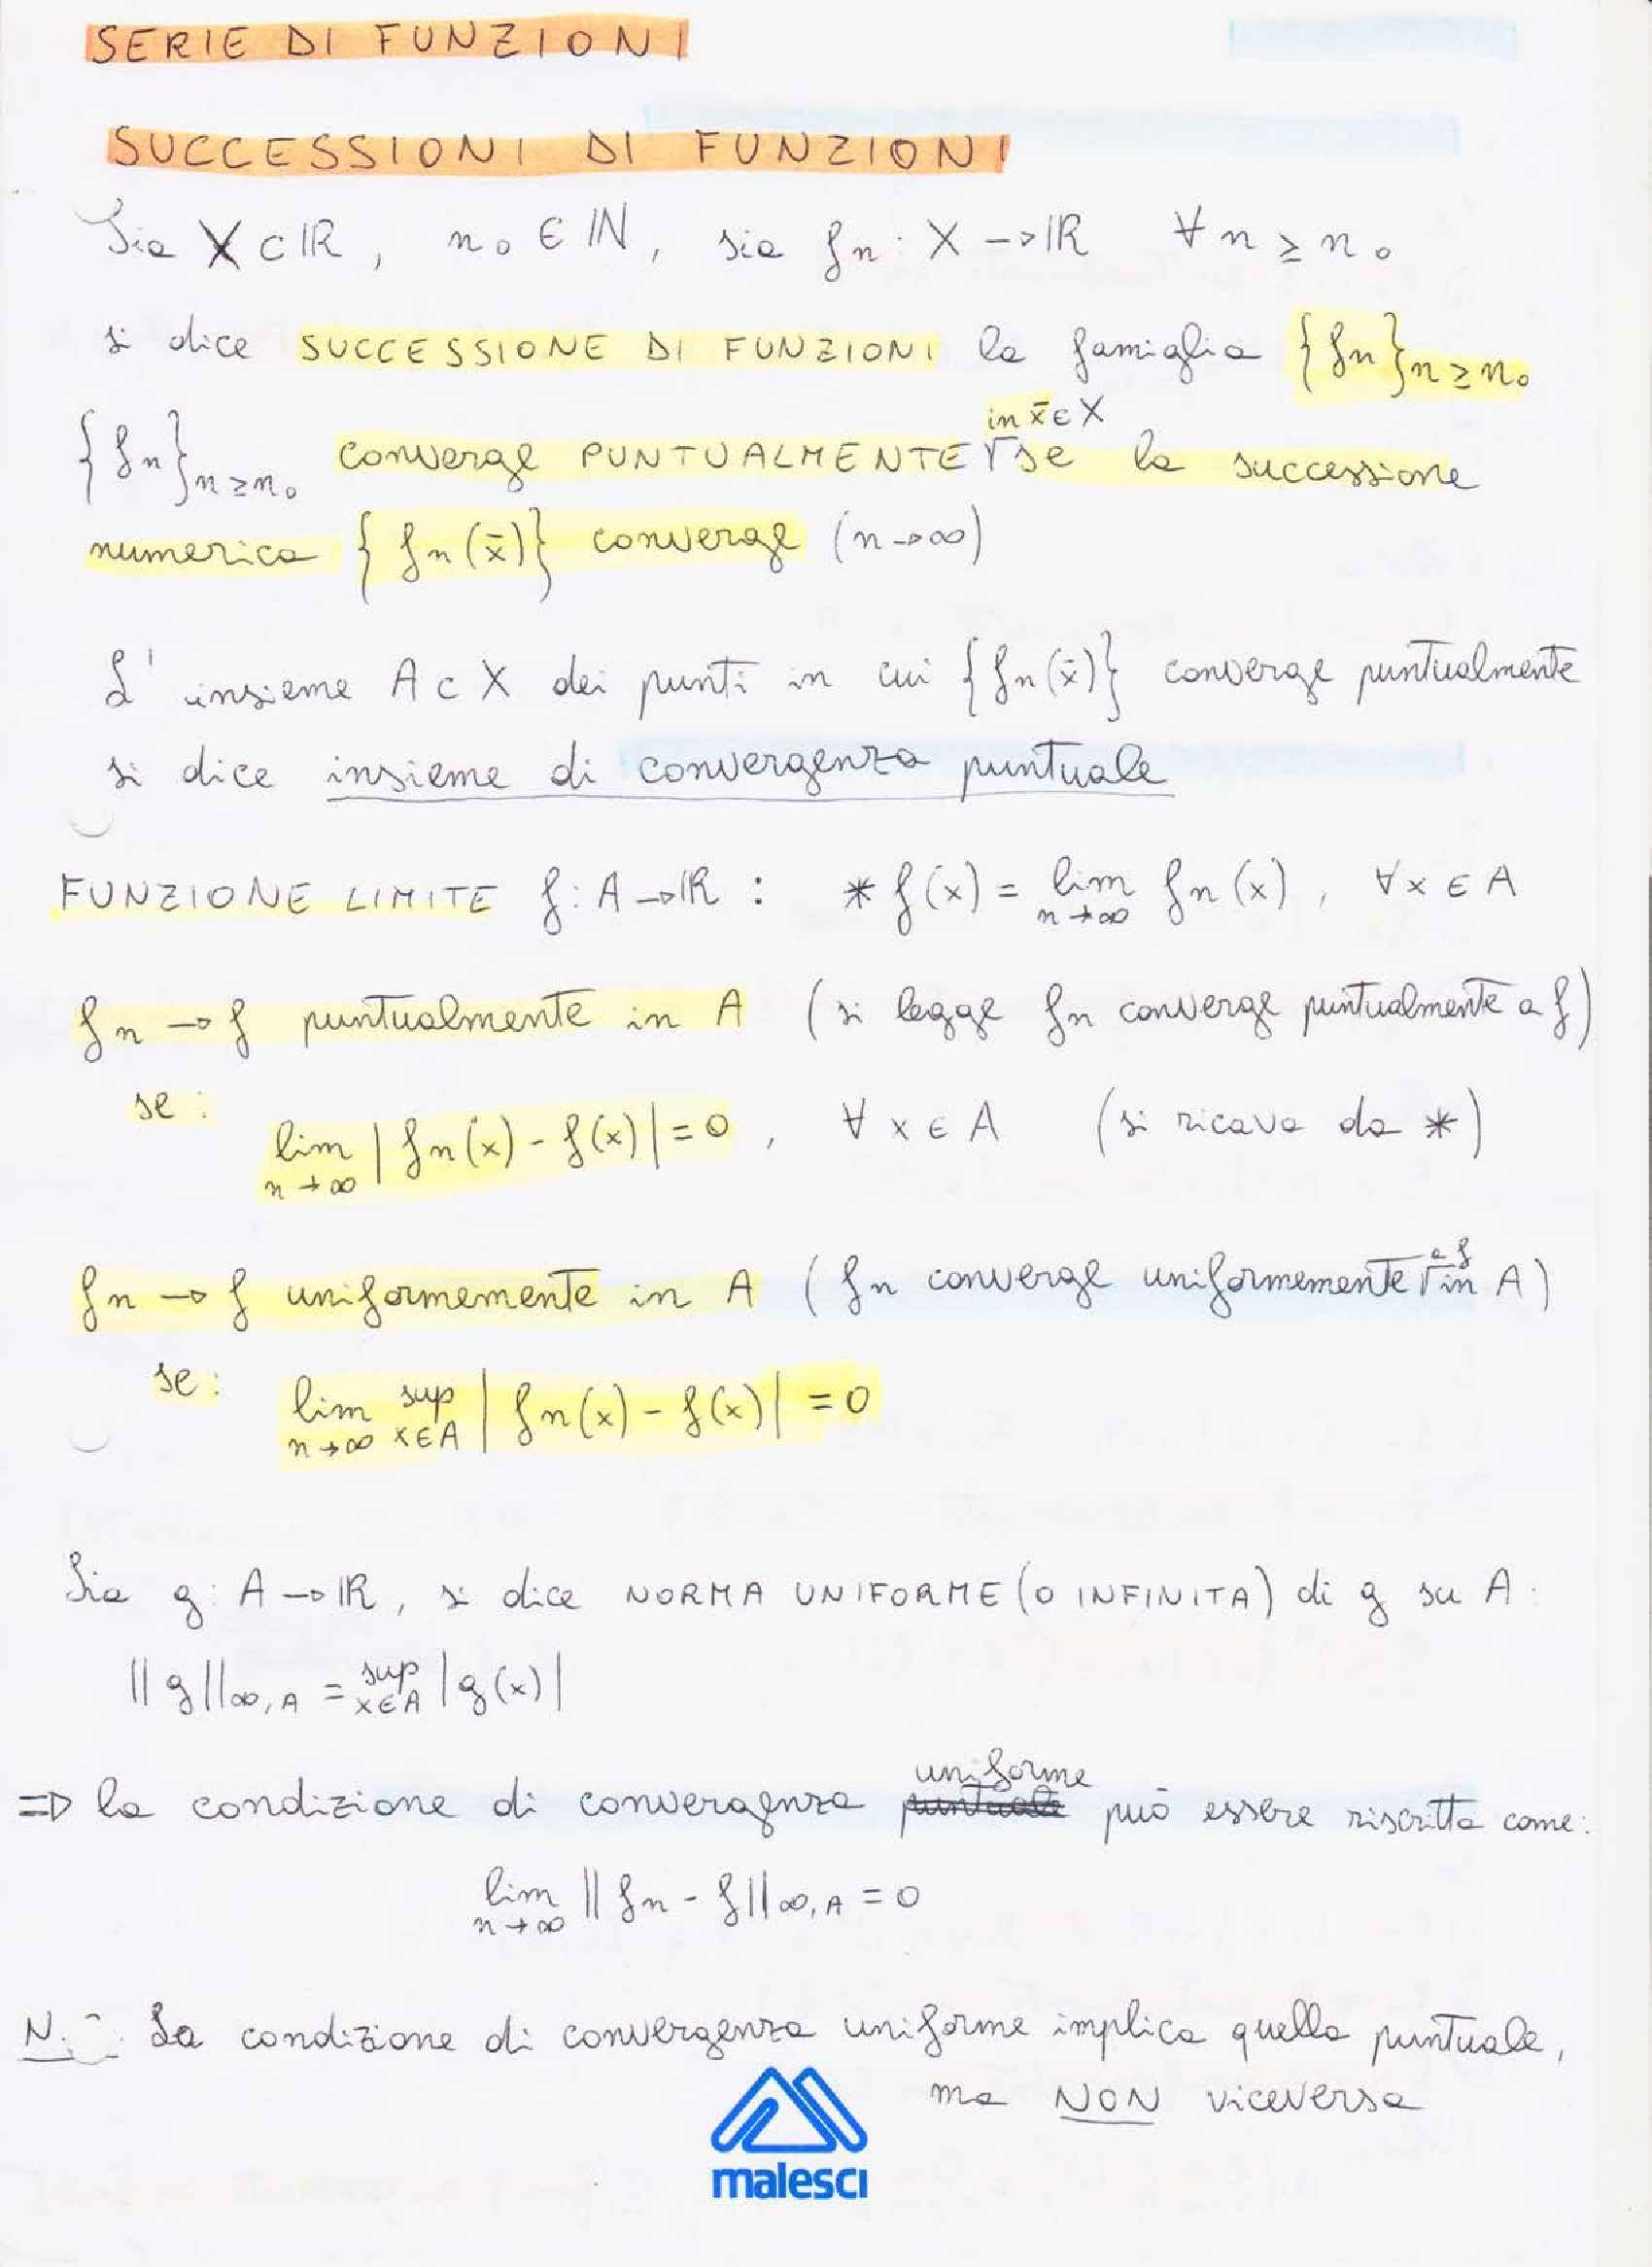 SERIE DI FUNZIONI
SUCCESSIONI DI FUNZIONI
Sia X⊂ℝ, n₀∈ℕ, sia fn: X→ℝ ∀n≥n₀
si dice SUCCESSIONE DI FUNZIONI la famiglia {fn}n≥n₀
in x̄∈X
{fn}n≥n₀ converge PUNTUALMENTE se la successione
numerica {fn(x̄)} converge (n→∞)
L'insieme A⊂X dei punti in cui {fn(x̄)} converge puntualmente
si dice insieme di convergenza puntuale
FUNZIONE LIMITE f: A→ℝ : * f(x) = lim n→∞ fn(x), ∀x∈A
fn→f puntualmente in A (si legge fn converge puntualmente a f)
se:
lim n→∞ |fn(x) - f(x)| = 0, ∀x∈A (si ricava da *)
a f
fn→f uniformemente in A (fn converge uniformemente in A)
se: lim n→∞ sup x∈A |fn(x) - f(x)| = 0
Sia g: A→ℝ, si dice NORMA UNIFORME (O INFINITA) di g su A:
||g||∞,A = sup x∈A |g(x)|
uniforme
⇒ la condizione di convergenza puntuale può essere riscritta come:
lim n→∞ ||fn - f||∞,A = 0
La condizione di convergenza uniforme implica quella puntuale,
ma NON viceversa
malesci